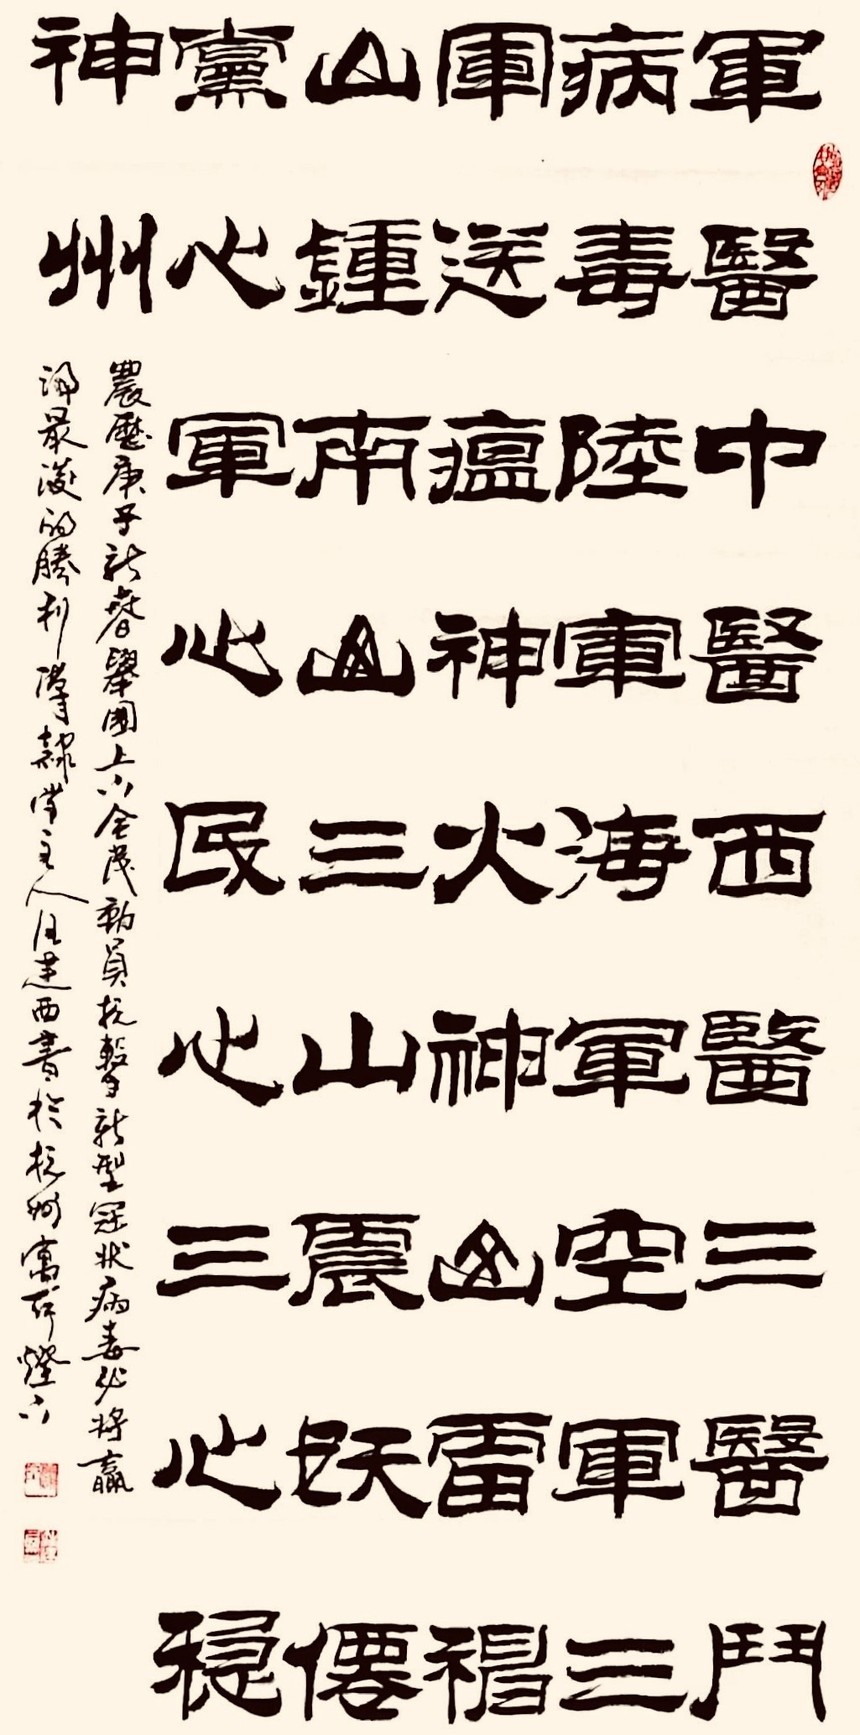 軍醫中醫西醫三醫鬥
病毒陸軍海軍空軍三
軍送瘟神火神山雷神
山鍾南山三山震妖僊
黨心軍心民心三心穩
神州
農歷庚子新春舉國上下全民動員抗擊新型冠狀病毒必將贏
得最後的勝利漢隸堂主人汪建西書於杭州寓所燈下